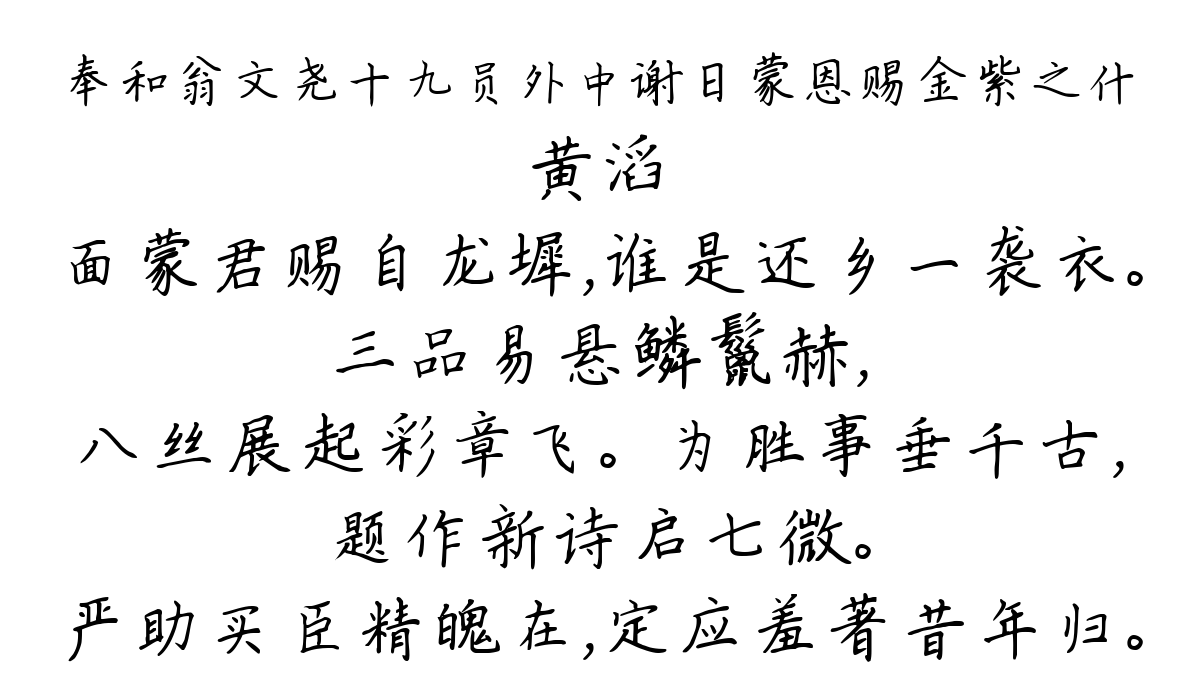 奉和翁文尧十九员外中谢日蒙恩赐金紫之什
黄滔
面蒙君赐自龙墀,谁是还乡一袭衣。
三品易悬鳞鬣赫,
八丝展起彩章飞。为胜事垂千古,
题作新诗启七微。
严助买臣精魄在,定应羞著昔年归。